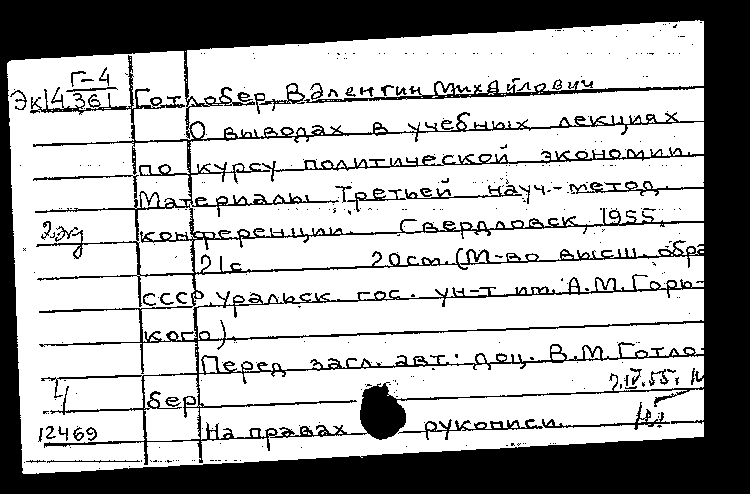 Г-4
Эк14 361 Готлобер, Валентин Михайлович
О выводах в учебных лекциях
по курсу политической экономии.
Материалы Третьей науч.-метод.
2 экз конференции. Свердловск, 1955.
21с. 20см. (М-во высш. обра
СССР. Уральск. гос. ун-т им. А.М.Горь-
кого).
Перед загл. авт.: доц. В.М.Готло-
4 бер.
12469 На правах рукописи.